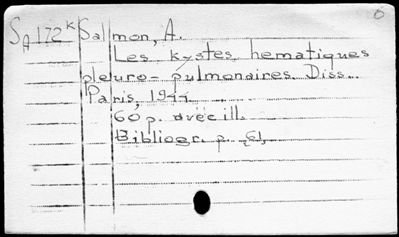 6
SA172K Salmon, A.
Les kystes hematiques
pleuro-pulmonaires. Diss..
Paris, 1944.
60 p. avec ill.
Bibliogr. p. 61.